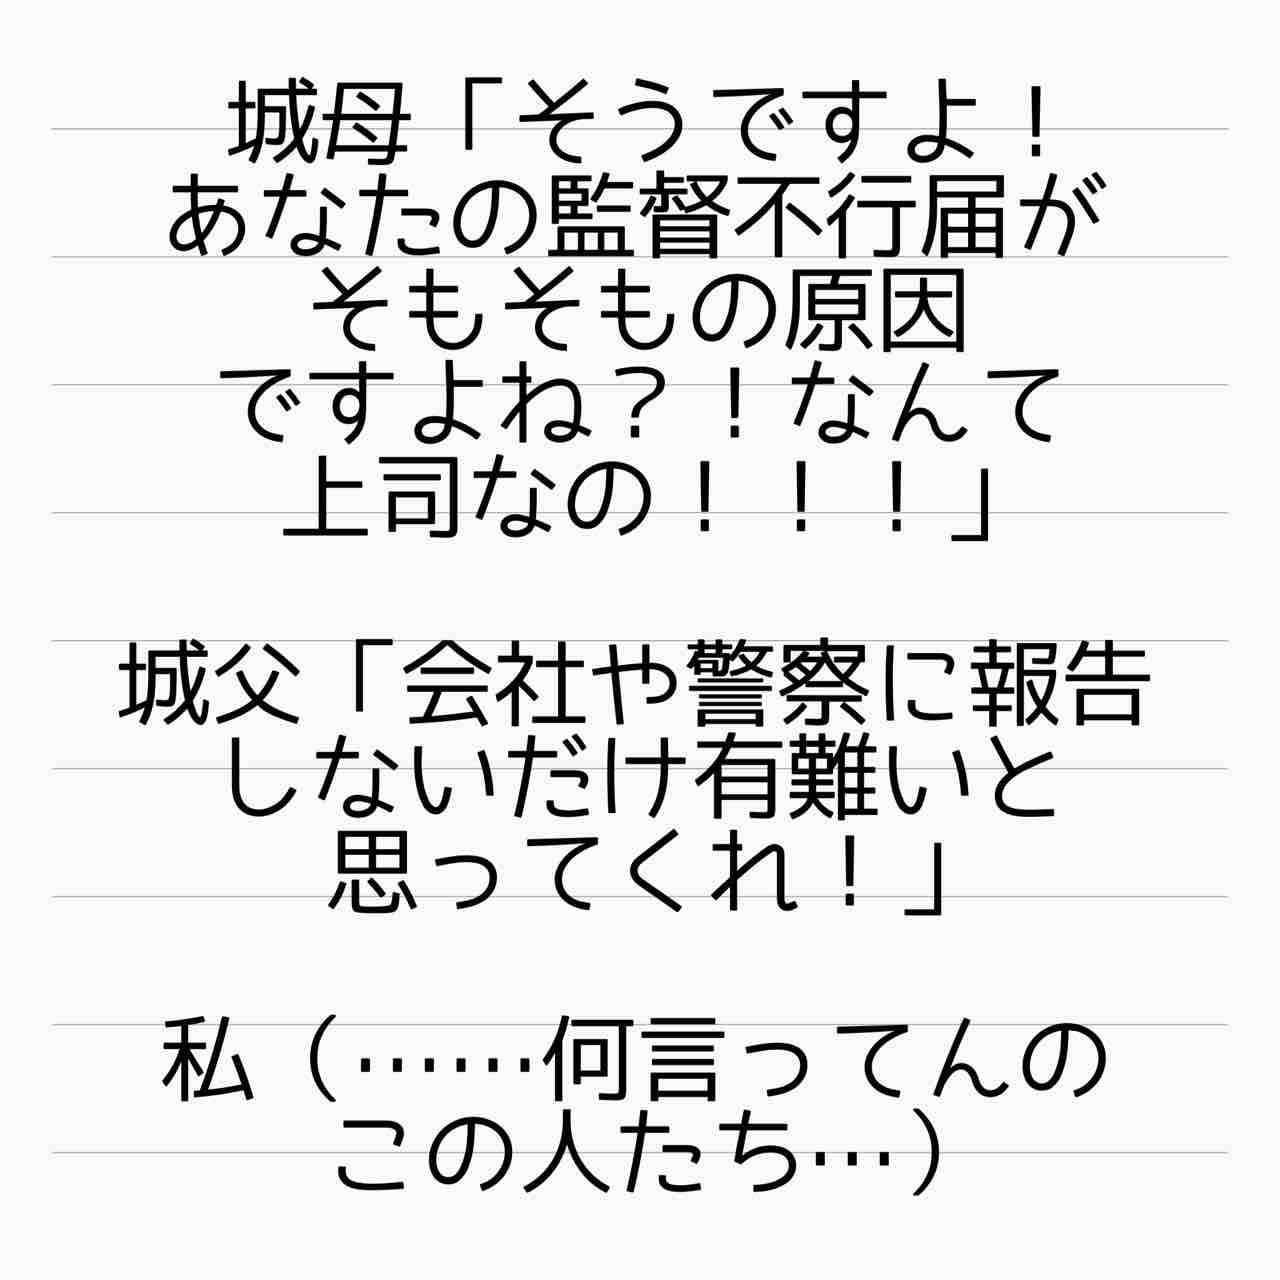 城母「そうですよ！
あなたの監督不行届が
そもそもの原因
ですよね？！なんて
上司なの！！！」
城父「会社や警察に報告
しないだけ有難いと
思ってくれ！」
私（……何言ってんの
この人たち…）